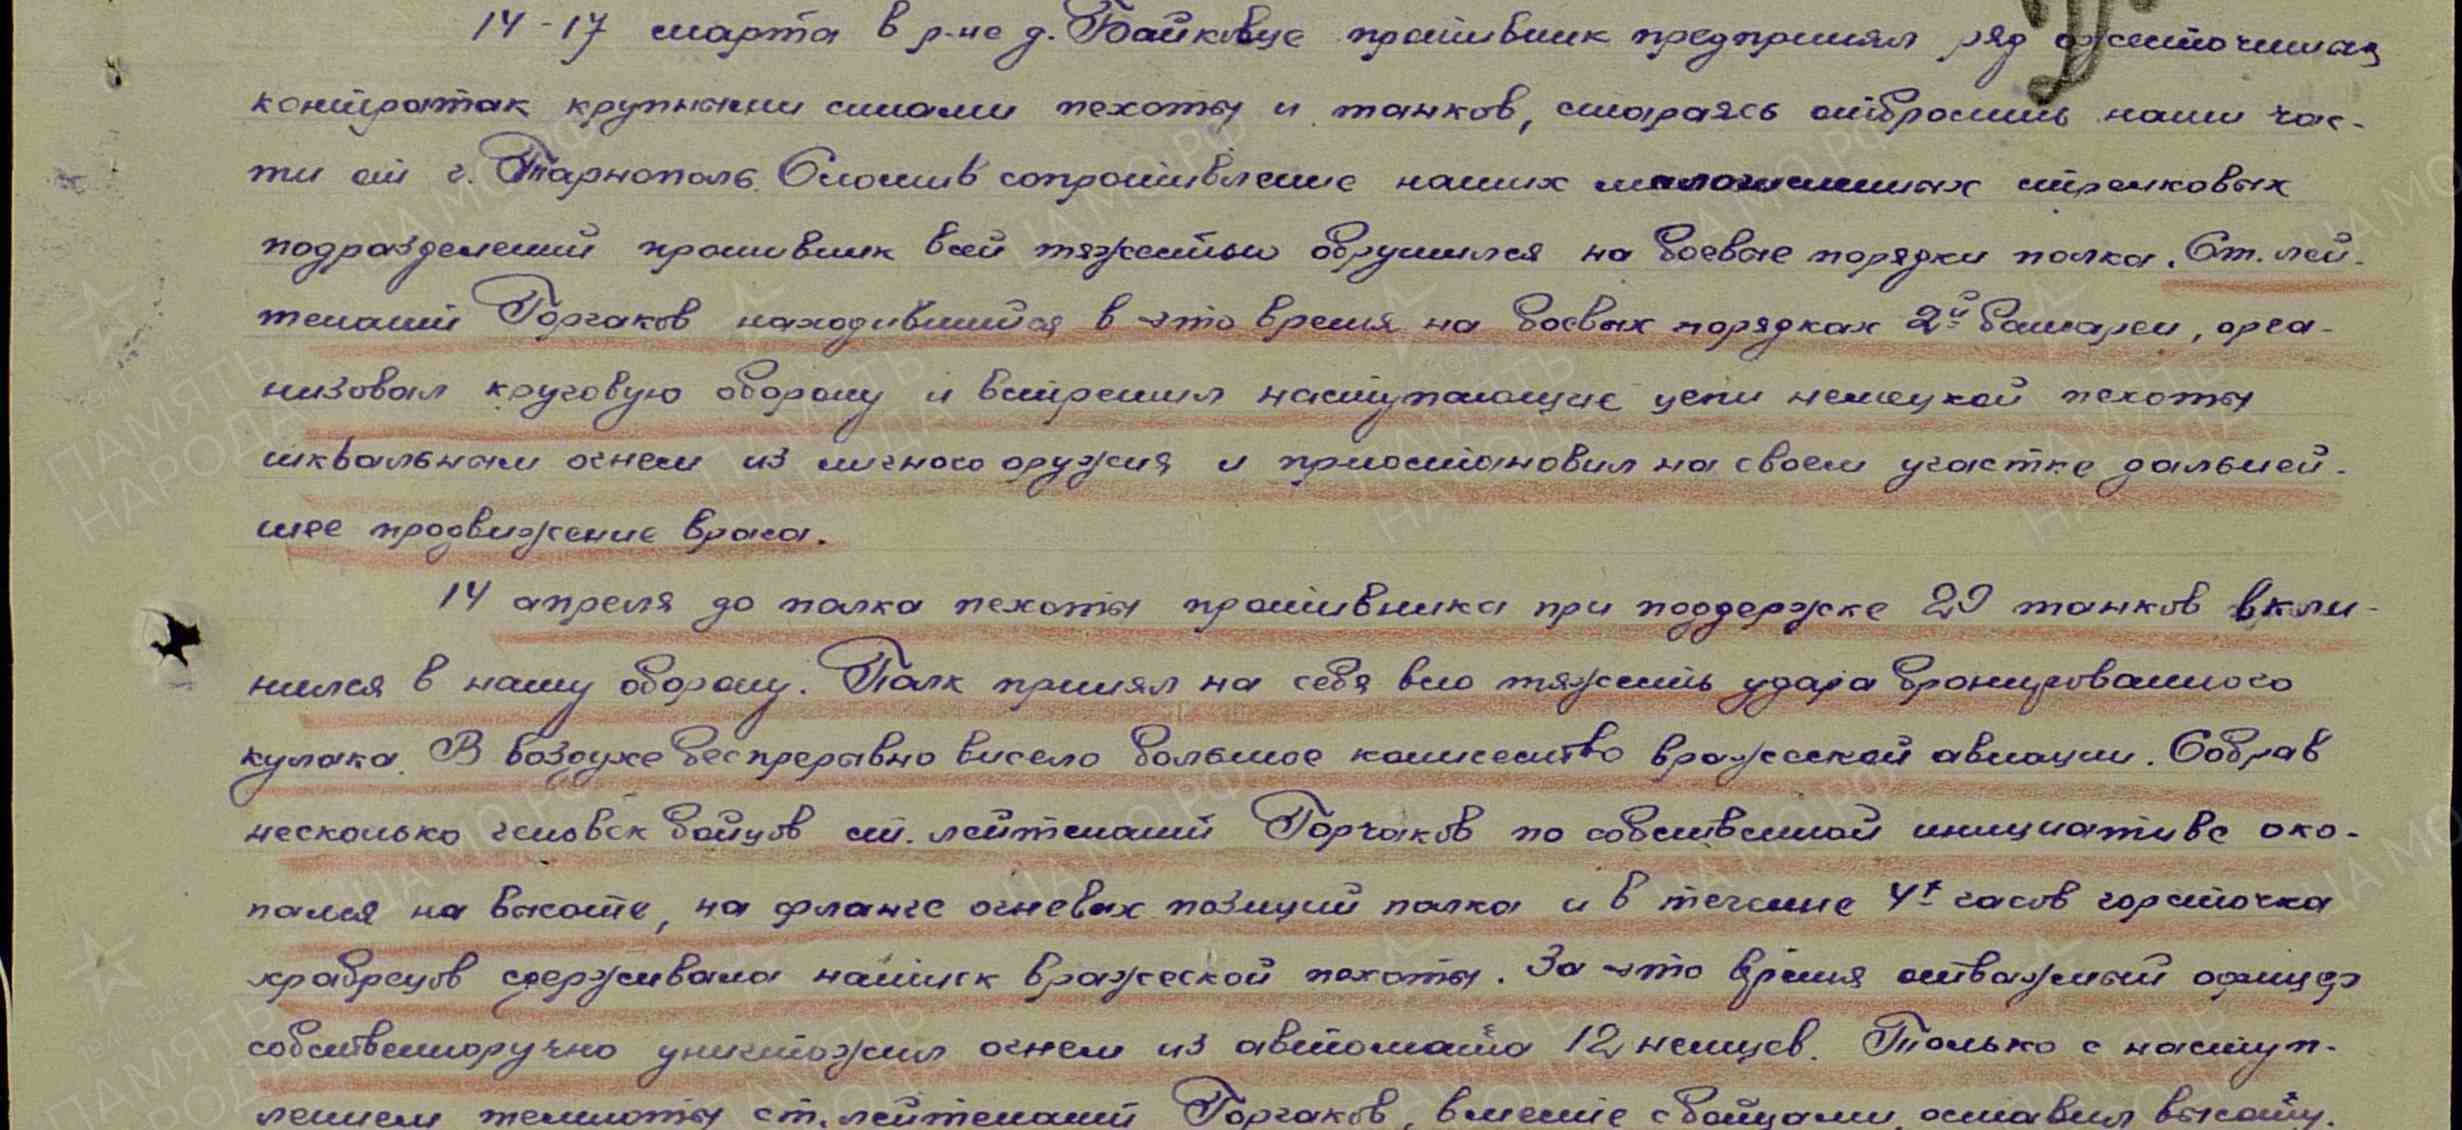 14-17 марта в р-не д. Байковце противник предпринял ряд ожесточенных
контратак крупными силами пехоты и танков, стараясь отбросить наши час-
ти от г. Тарнополь. Сломив сопротивление наших малочисленных стрелковых
подразделений противник всей тяжестью обрушился на боевые порядки полка. Ст. лей-
тенант Горчаков находившийся в это время на боевых порядках 2й батареи, орга-
низовал круговую оборону и встретил наступающие цепи немецкой пехоты
шквальным огнем из личного оружия и приостановил на своем участке дальней-
шее продвижение врага.
14 апреля до полка пехоты противника при поддержке 29 танков вкли-
нился в нашу оборону. Полк принял на себя всю тяжесть удара бронированного
кулака. В воздухе беспрерывно висело большое количество вражеской авиации. Собрав
несколько человек бойцов ст. лейтенант Горчаков по собственной инициативе око-
пался на высоте, на фланге огневых позиций полка и в течение 4х часов горсточка
храбрецов сдерживала натиск вражеской пехоты. За это время отважный офицер
собственноручно уничтожил огнем из автомата 12 немцев. Только с наступ-
лением темноты ст. лейтенант Горчаков, вместе с бойцами, оставил высоту.
ПАМЯТЬ НАРОДА
ЦАМО.РФ